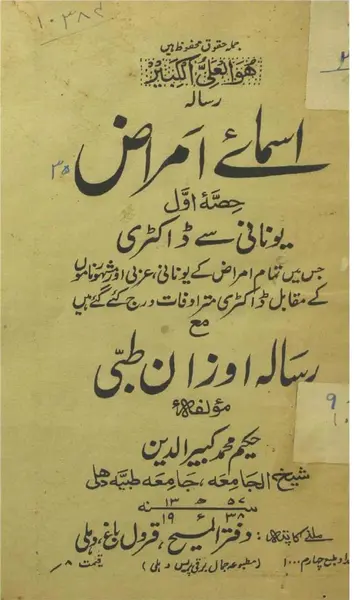 ۱۰۳۸۴
جملہ حقوق محفوظ ہیں
ھوالعلی الکبیر
رسالہ
اسمائے امراض
۳۵
حصۂ اوّل
یونانی سے ڈاکٹری
جس میں تمام امراض کے یونانی، عربی اور مشہور ناموں
کے مقابل ڈاکٹری مترادفات درج کئے گئے ہیں
مع
رسالہ اوزان طبّی
مؤلفہ
حکیم محمد کبیر الدین
شیخ الجامعہ، جامعہ طبیہ دہلی
۱۳۵۷ھ
سنہ
۱۹۳۸ء
ملنے کا پتہ: دفتر المسیح، قرول باغ، دہلی
طبع چہارم ۱۰۰۰ (مطبوعہ جمال برقی پریس دہلی) قیمت ۸؍